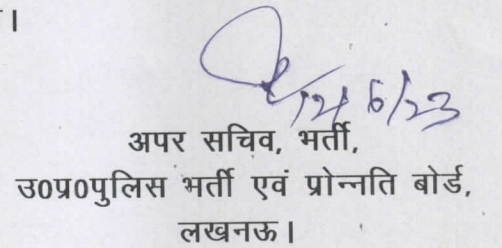 ।
12/6/23
अपर सचिव, भर्ती,
उ0प्र0पुलिस भर्ती एवं प्रोन्नति बोर्ड,
लखनऊ।